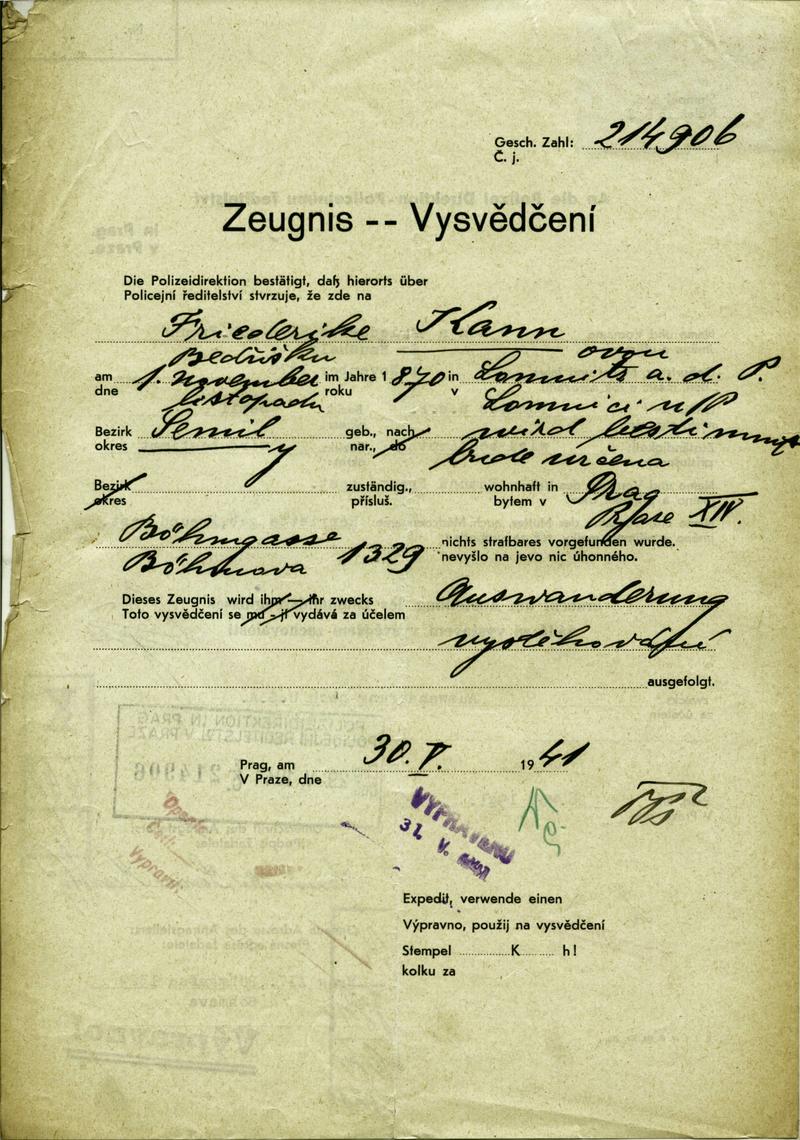 Gesch. Zahl: 214906
Č. j.
Zeugnis -- Vysvědčení
Die Polizeidirektion bestätigt, daß hierorts über
Policejní ředitelství stvrzuje, že zde na
Friederike Kann
Bedřišku ovou
am 1. november im Jahre 1870 in Lomnitz a. d. P.
dne listopadu roku v Lomnici n/P
Bezirk Semil geb., nach wird bestimmt
okres y nar., do bude určena
Bezirk zuständig., wohnhaft in Prag
okres přísluš. bytem v Praze XIV.
Böhmgasse nichts strafbares vorgefunden wurde.
Böhmova 1329 nevyšlo na jevo nic úhonného.
Dieses Zeugnis wird ihm — ihr zwecks Auswanderung
Toto vysvědčení se mu - jí vydává za účelem
vystěhování
ausgefolgt.
POLIZEIDIREKTION IN PRAG
POLICEJNÍ ŘEDITELSTVÍ V PRAZE
214906
Prag, am 30. V. 1941
V Praze, dne
VYPRAVENO
31. V. 1941
Expedit, verwende einen
Výpravno, použij na vysvědčení
Stempel K h!
kolku za